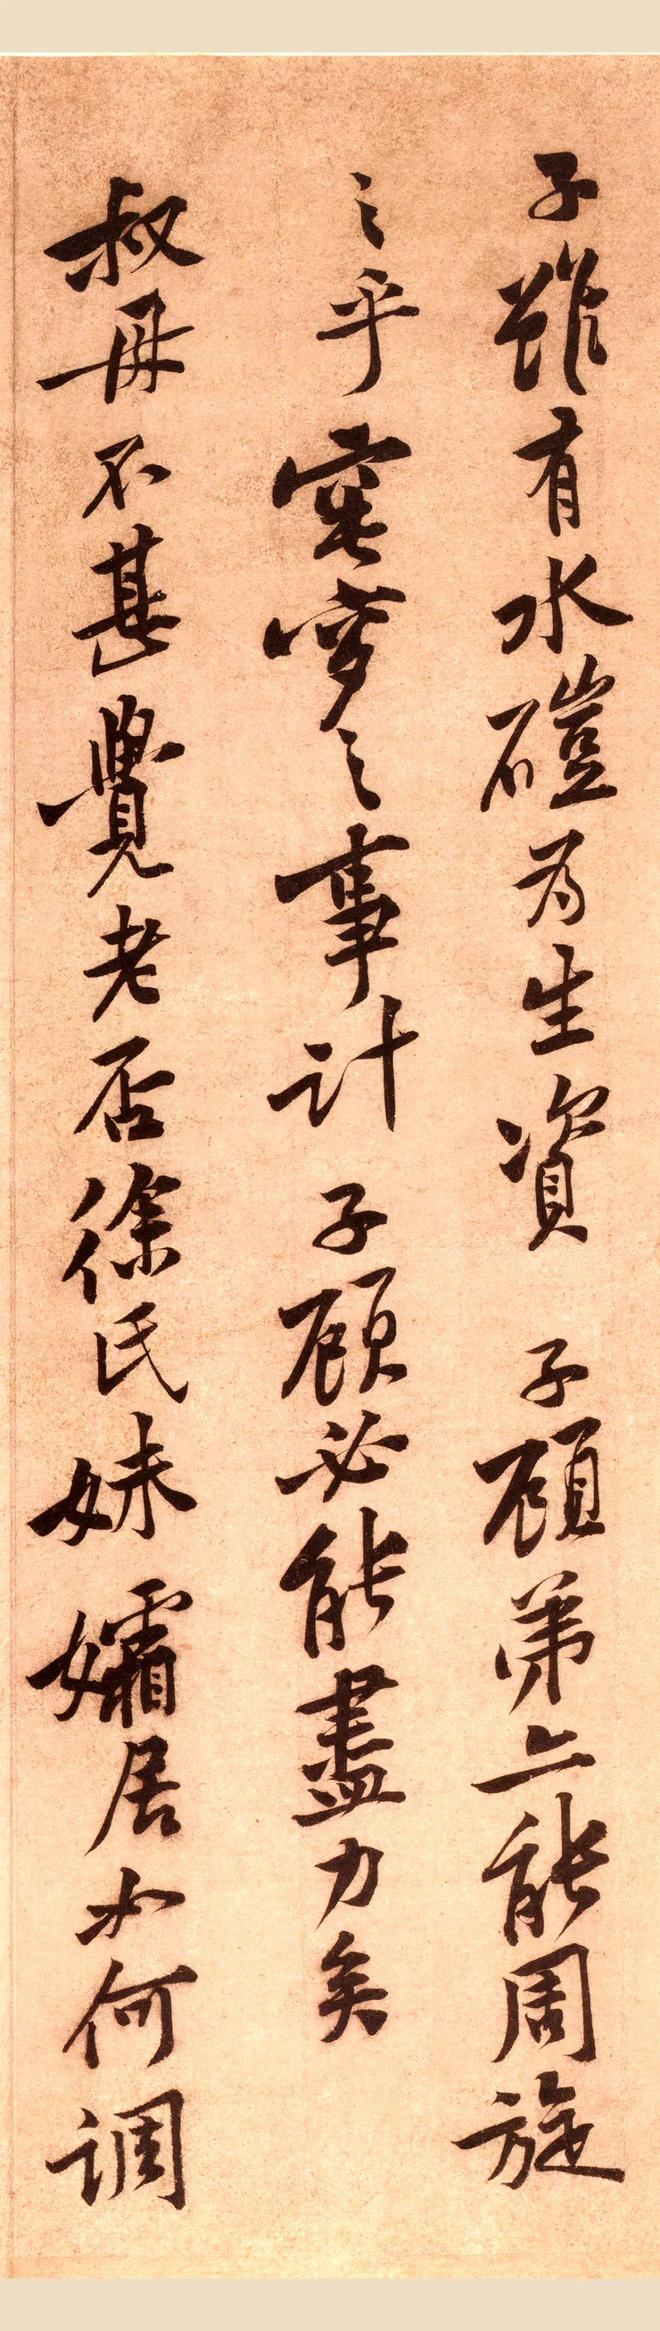 子雖有水磑為生資 子顧弟亦能周旋
之乎窀穸之事計 子顧必能盡力矣
叔母不甚覺老否徐氏妹孀居如何調